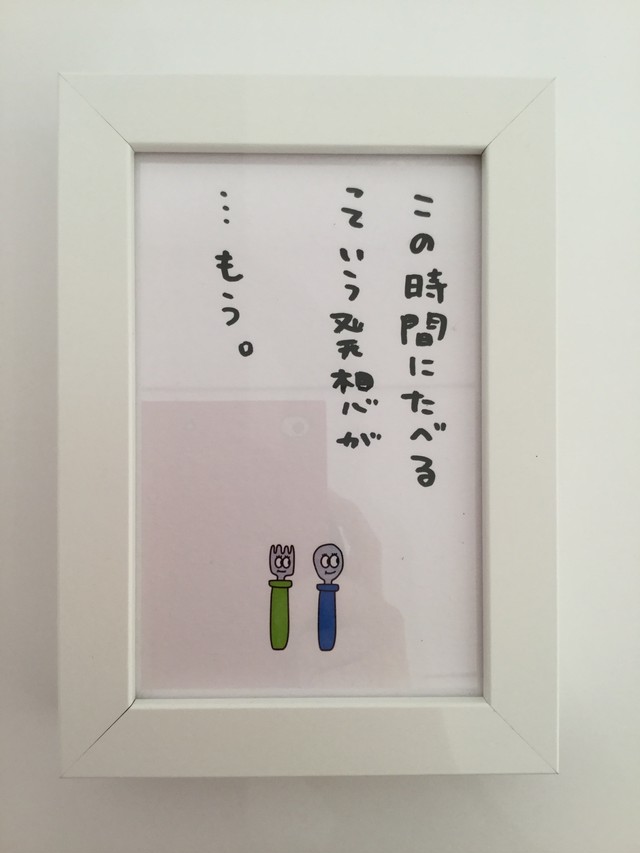 この時間にたべる
っていう発想が
…もう。